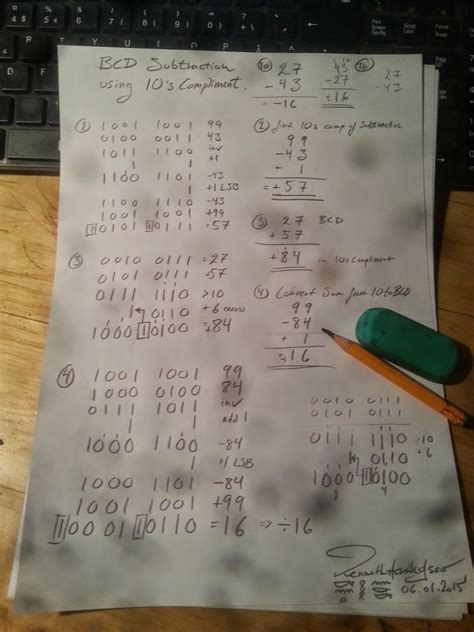 BCD Subtraction
using 10's Compliment.
1a 27
- 43
= -16
1b 43
- 27
÷16
27
-43
2 1001 1001 99
0100 0011 43
1011 1100 inv
1 1
1100 1101 -43
1 +1 LSB
1100 1110 -43
1001 1001 +99
1 0101 1 0111 = 57
2 find 10s comp of Subtraction
99
- 43
+ 1
= +57
3 27 BCD
+ 57
+84 in 10s Compliment
3 0010 0111 = 27
0101 0111 +57
0111 1110 >10
1 0110 +6 excess
1000 1 0100 = 84
4 Convert Sum from 10 to BCD
99
- 84
+ 1
= 16
4 1001 1001 99
1000 0100 84
0111 1011 inv
1 1 add 1
1000 1100 -84
1 +1 LSB
1000 1101 -84
1001 1001 +99
1 0001 1 0110 = 16 => ÷16
0010 0111
0101 0111
0111 1110 >10
1 0110 +6
1000 1 0100
8 4
06.01.2015